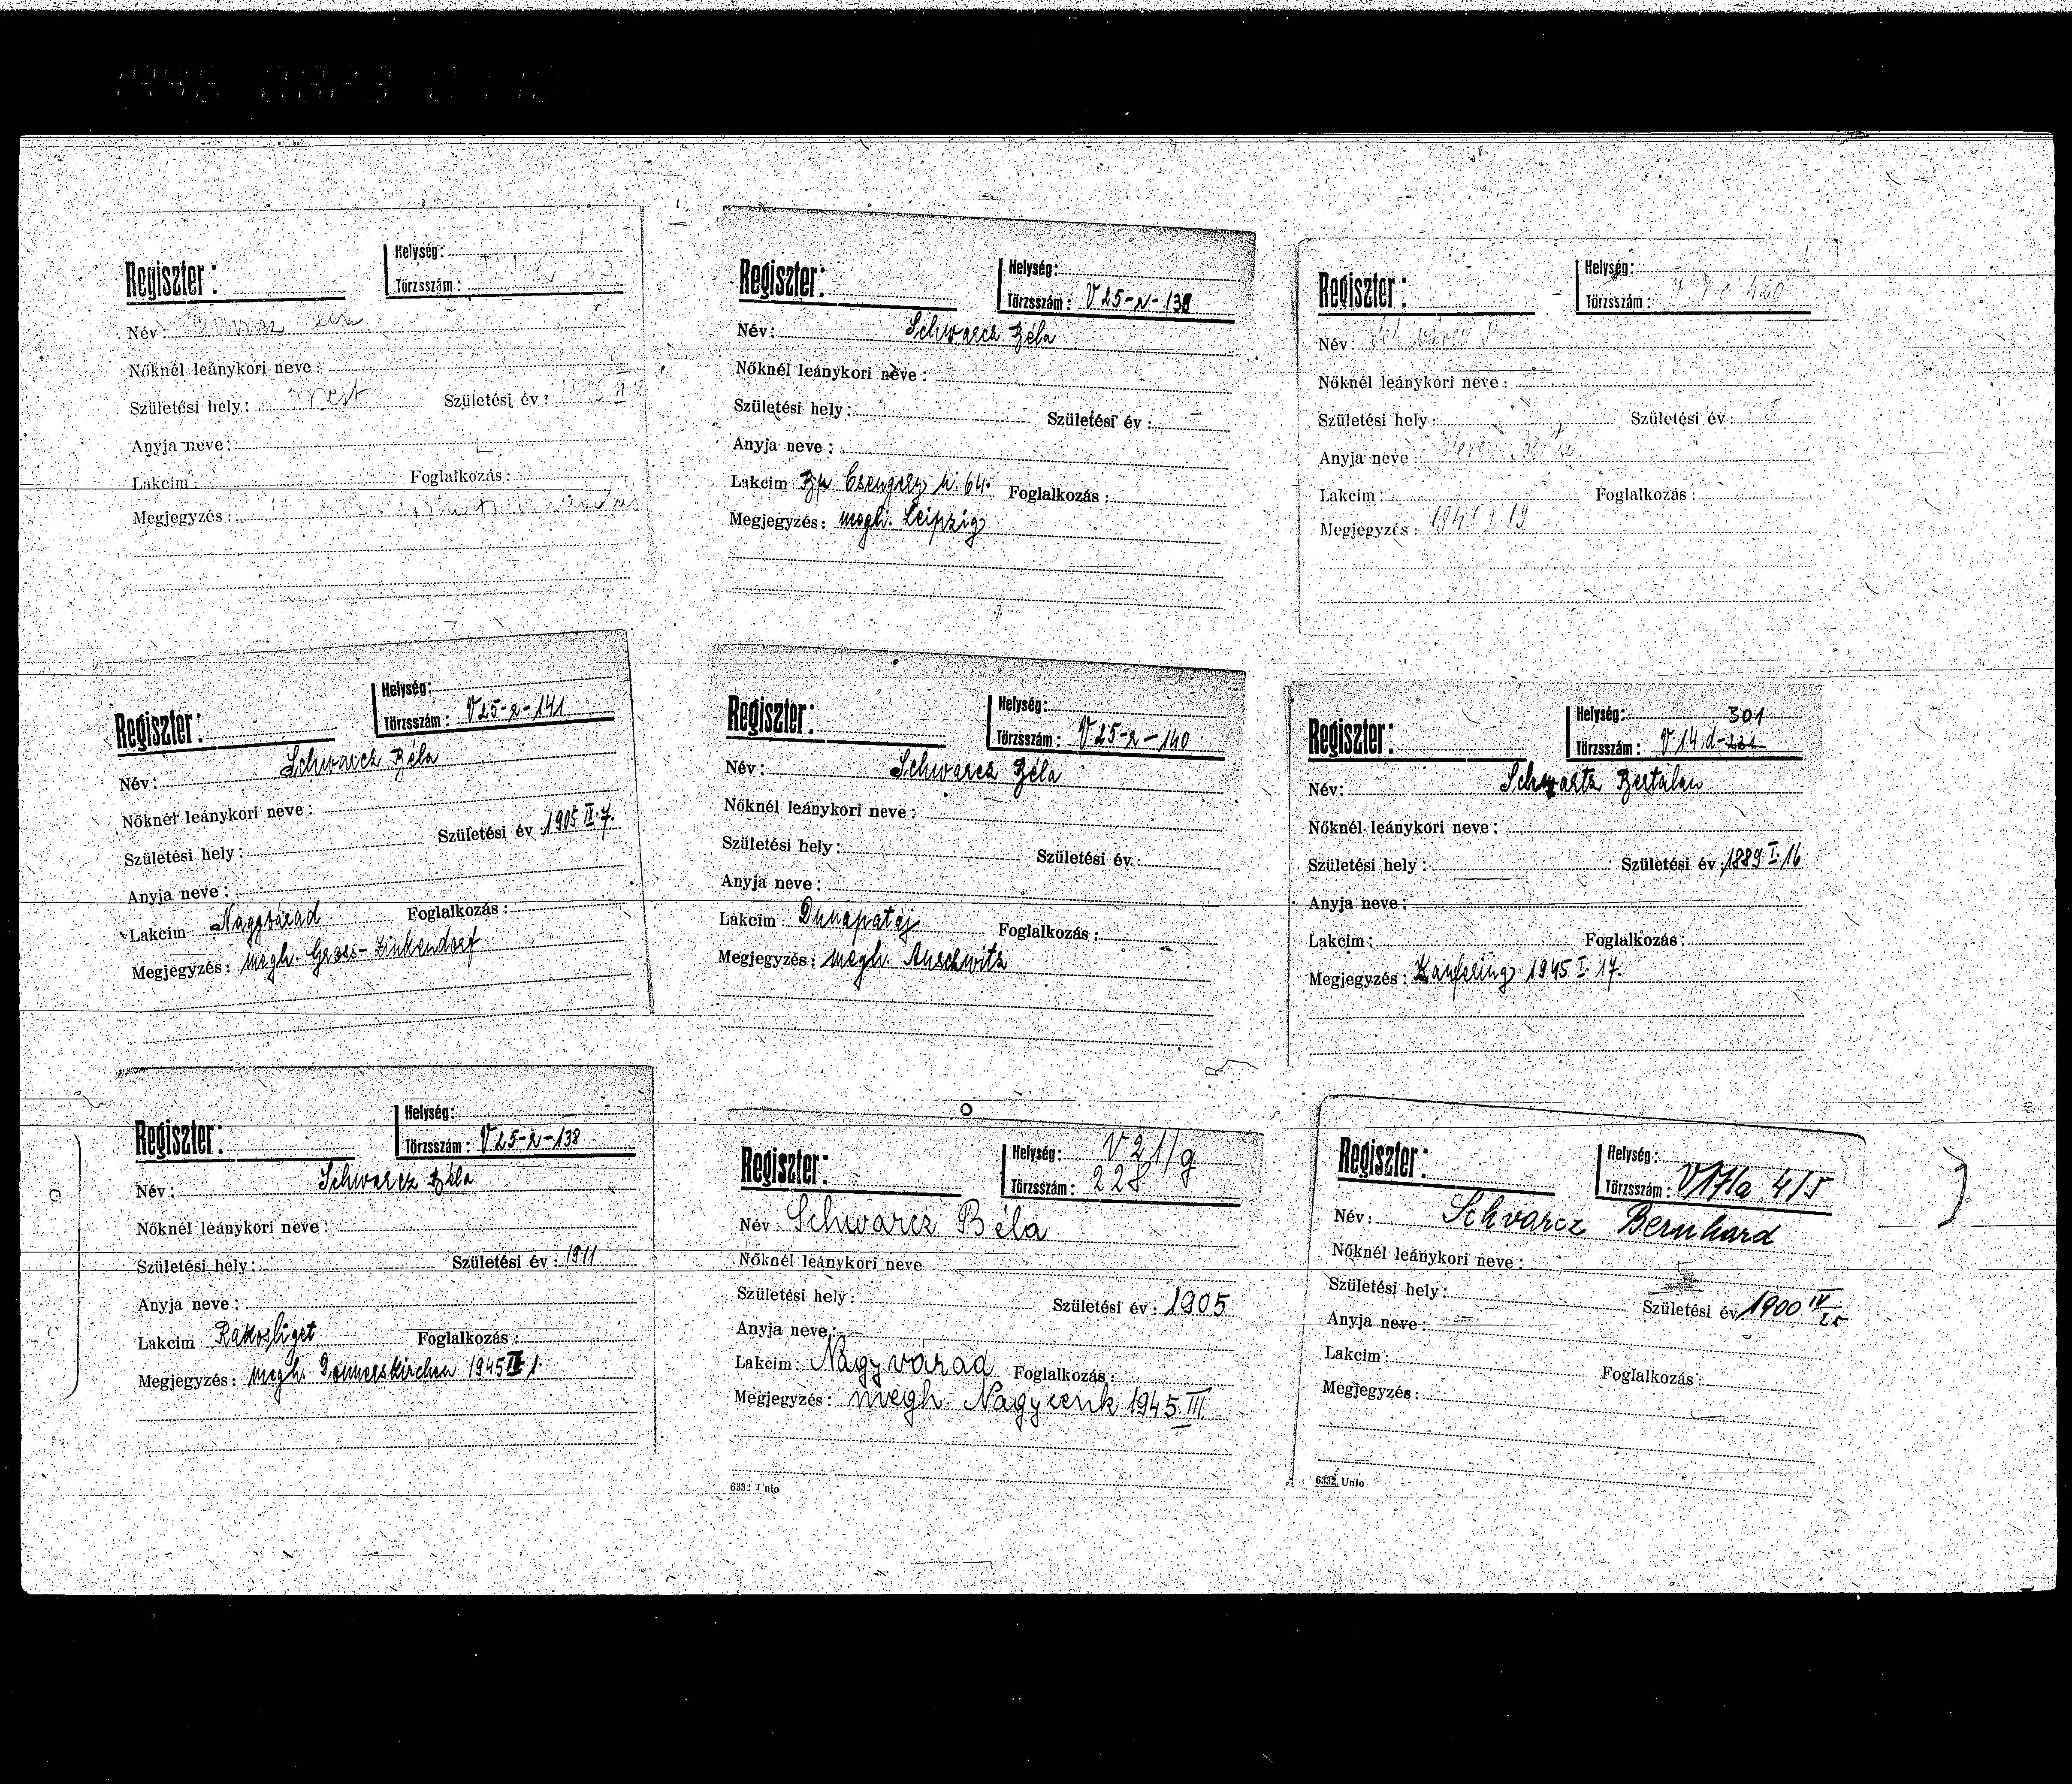 Helység:
Regiszter:
Törzsszám:
Név:
Nőknél leánykori neve:
Születési hely: Pest Születési év:
Anyja neve:
Lakcim: Foglalkozás:
Megjegyzés:
Helység:
Regiszter:
Törzsszám: V 25-2-139
Név: Schwarcz Béla
Nőknél leánykori neve:
Születési hely: Születési év:
Anyja neve:
Lakcim Bp Csengery u. 64. Foglalkozás:
Megjegyzés: megh. Leipzig
Helység:
Regiszter:
Törzsszám: 420
Név: Schwarcz
Nőknél leánykori neve:
Születési hely: Születési év:
Anyja neve
Lakcim: Foglalkozás:
Megjegyzés: 19
Helység:
Regiszter:
Törzsszám: V 25-2-141
Név: Schwarcz Béla
Nőknél leánykori neve:
Születési hely: Születési év 1905 II. 7.
Anyja neve:
Lakcim Nagyvárad Foglalkozás:
Megjegyzés: megh. Gross-Zinkendorf
Helység:
Regiszter:
Törzsszám: V 25-2-140
Név: Schwarcz Béla
Nőknél leánykori neve:
Születési hely: Születési év:
Anyja neve:
Lakcim Dunapataj Foglalkozás:
Megjegyzés: megh. Auschwitz
Helység: 301
Regiszter:
Törzsszám: V 14 d-
Név: Schwartz Bertalan
Nőknél leánykori neve:
Születési hely: Születési év: 1889 I. 16
Anyja neve:
Lakcim: Foglalkozás:
Megjegyzés: Kaufering 1945 I. 17.
Helység:
Regiszter:
Törzsszám: V 25-2-138
Név: Schwarcz Béla
Nőknél leánykori neve:
Születési hely: Születési év: 1911
Anyja neve:
Lakcim Rákosliget Foglalkozás:
Megjegyzés: megh. Donnerskirchen 1945 II. 1.
Helység: V 21/g
Regiszter:
Törzsszám: 228
Név: Schwarcz Béla
Nőknél leánykori neve
Születési hely: Születési év: 1905
Anyja neve:
Lakcim: Nagyvárad Foglalkozás:
Megjegyzés: megh. Nagycenk 1945. III.
6332 Unio
Helység:
Regiszter:
Törzsszám: V17/a 4/5
Név: Schvarcz Bernhard
Nőknél leánykori neve:
Születési hely: Születési év 1900 IV 25
Anyja neve:
Lakcim:
Foglalkozás:
Megjegyzés:
6332. Unio